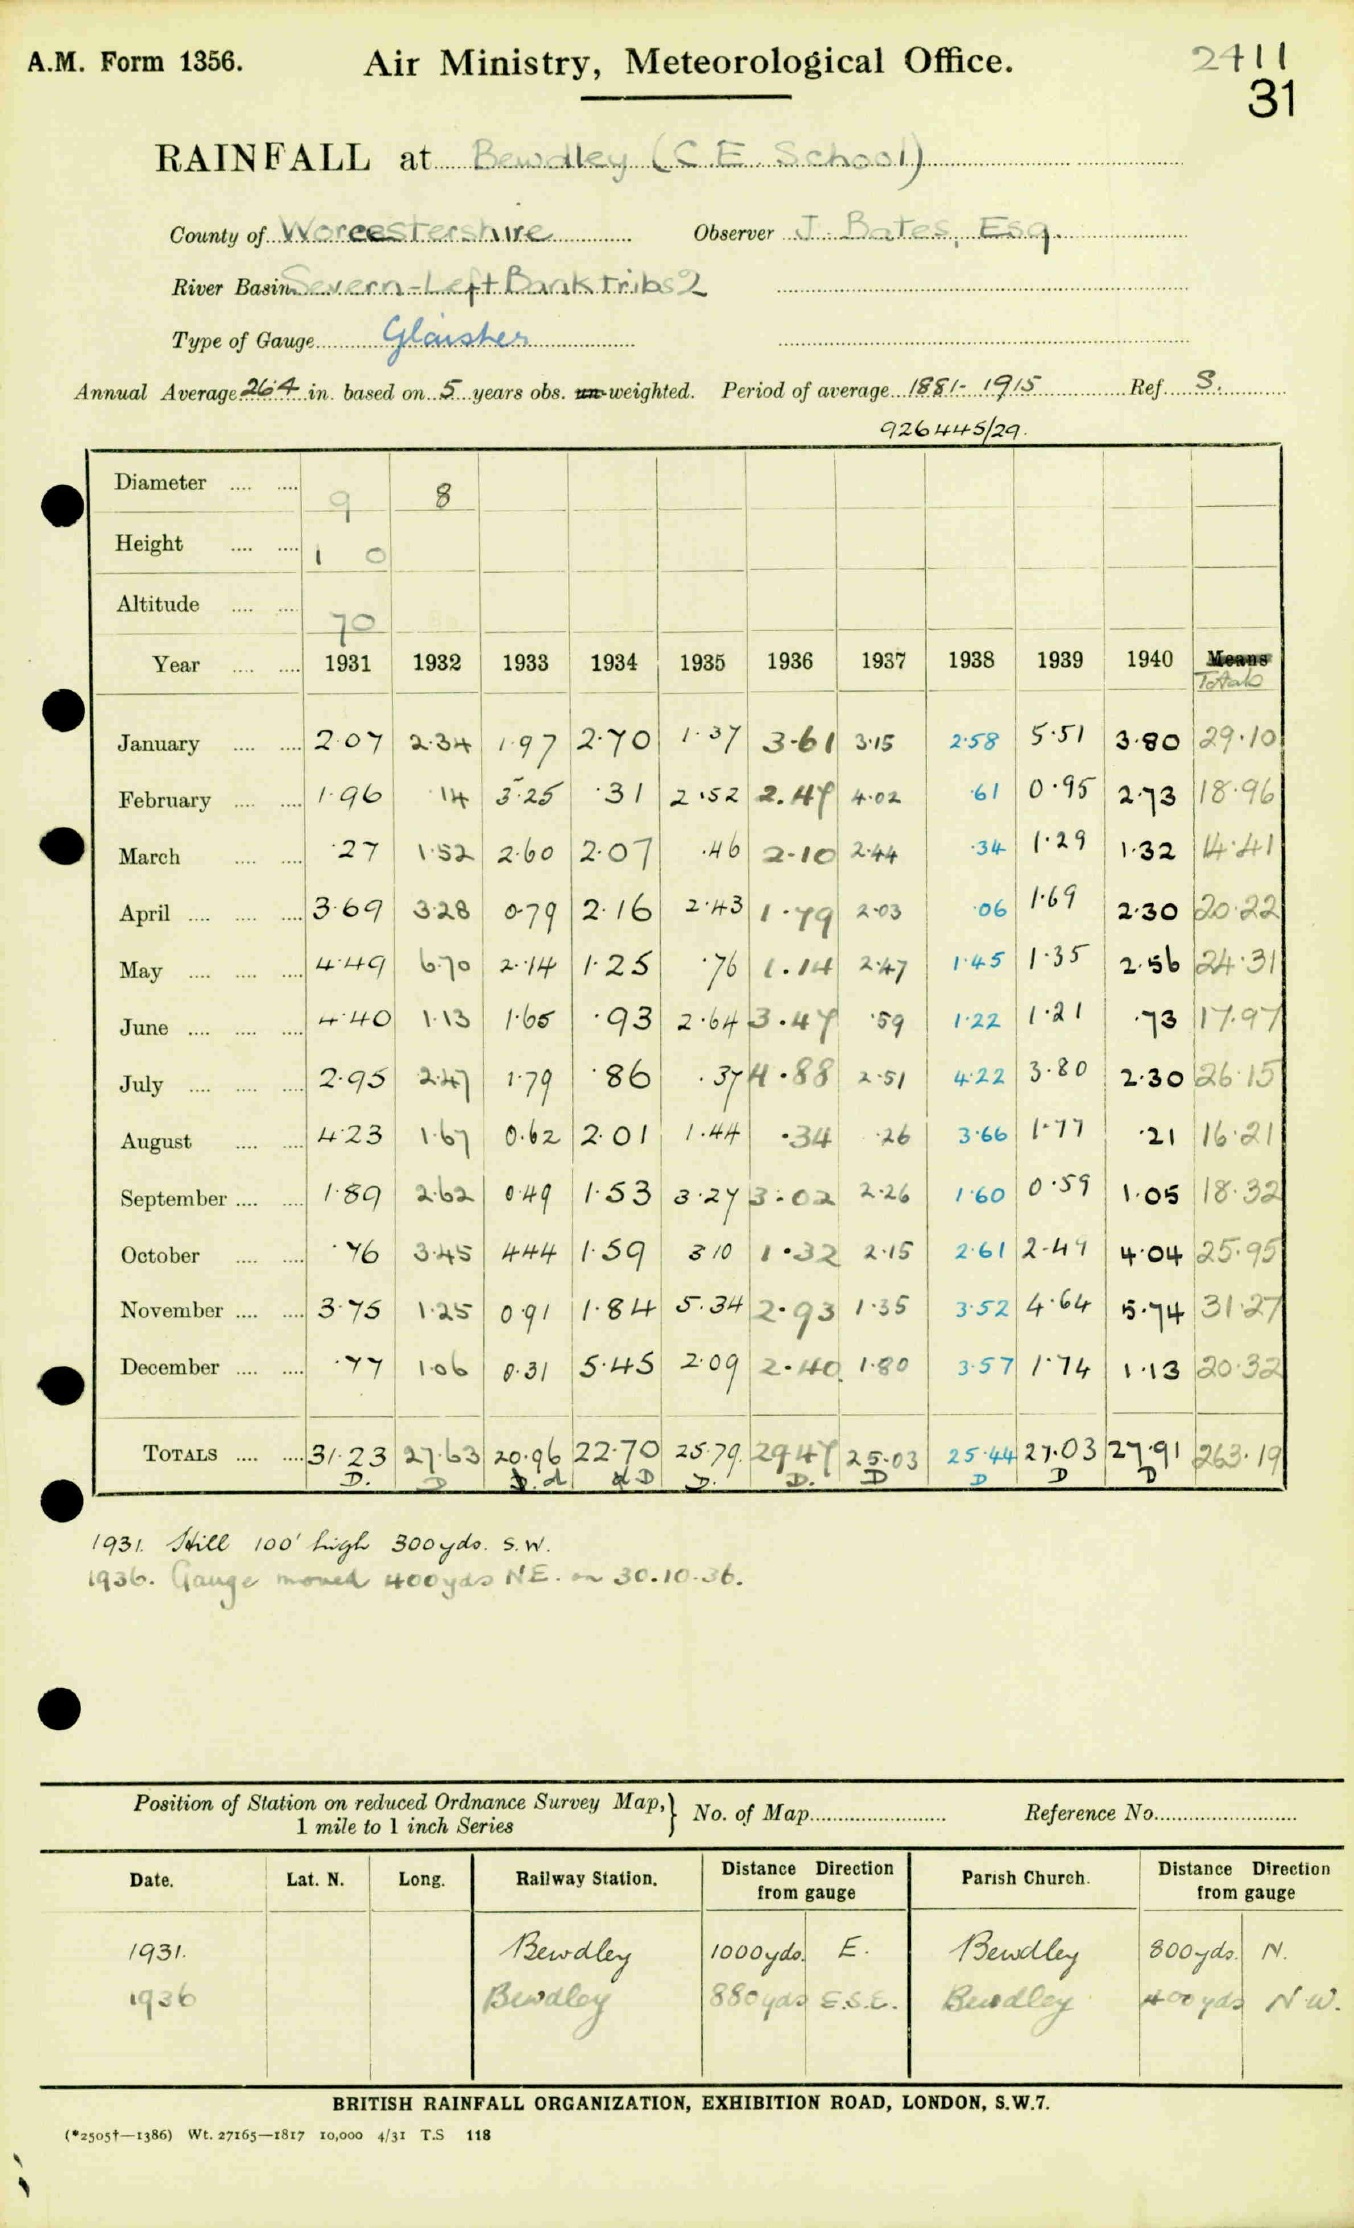 A.M. Form 1356. Air Ministry, Meteorological Office. 2411
31
RAINFALL at Bewdley (C.E. School)
County of Worcestershire Observer J. Bates, Esq.
River Basin Severn-Left Bank Tribs 2
Type of Gauge Glaisher
Annual Average 26.4 in. based on 5 years obs. un-weighted. Period of average 1881-1915 Ref. S.
926445/29.
Diameter .... .... 9 8
Height .... .... 1 0
Altitude .... .... 70
Year .... .... 1931 1932 1933 1934 1935 1936 1937 1938 1939 1940 Means
Totals
January .... .... 2.07 2.34 1.97 2.70 1.37 3.61 3.15 2.58 5.51 3.80 29.10
February .... .... 1.96 .14 3.25 .31 2.52 2.47 4.02 .61 0.95 2.73 18.96
March .... .... .27 1.52 2.60 2.07 .46 2.10 2.44 .34 1.29 1.32 14.41
April .... .... .... 3.69 3.28 0.79 2.16 2.43 1.79 2.03 .06 1.69 2.30 20.22
May .... .... .... 4.49 6.70 2.14 1.25 .76 1.14 2.47 1.45 1.35 2.56 24.31
June .... .... .... 4.40 1.13 1.65 .93 2.64 3.47 .59 1.22 1.21 .73 17.97
July .... .... .... 2.95 2.47 1.79 .86 .37 4.88 2.51 4.22 3.80 2.30 26.15
August .... .... 4.23 1.67 0.62 2.01 1.44 .34 .26 3.66 1.77 .21 16.21
September .... .... 1.89 2.62 0.49 1.53 3.27 3.02 2.26 1.60 0.59 1.05 18.32
October .... .... .76 3.45 4.44 1.59 3 10 1.32 2.15 2.61 2.49 4.04 25.95
November .... .... 3.75 1.25 0.91 1.84 5.34 2.93 1.35 3.52 4.64 5.74 31.27
December .... .... .77 1.06 0.31 5.45 2.09 2.40 1.80 3.57 1.74 1.13 20.32
TOTALS .... .... 31.23 27.63 20.96 22.70 25.79. 29.47 25.03 25.44 27.03 27.91 263.19
D. D D. d d D D. D. D D D D
1931. Hill 100' high 300yds. S.W.
1936. Gauge moved 400yds NE. on 30.10.36.
Position of Station on reduced Ordnance Survey Map, } No. of Map Reference No.
1 mile to 1 inch Series
Date. Lat. N. Long. Railway Station. Distance Direction from gauge Parish Church. Distance Direction from gauge
1931. Bewdley 1000yds. E. Bewdley 800yds. N.
1936 Bewdley 880yds E.S.E. Bewdley 400yds N.W.
BRITISH RAINFALL ORGANIZATION, EXHIBITION ROAD, LONDON, S.W.7.
(*2505†—1386) Wt. 27165—1817 10,000 4/31 T.S 118